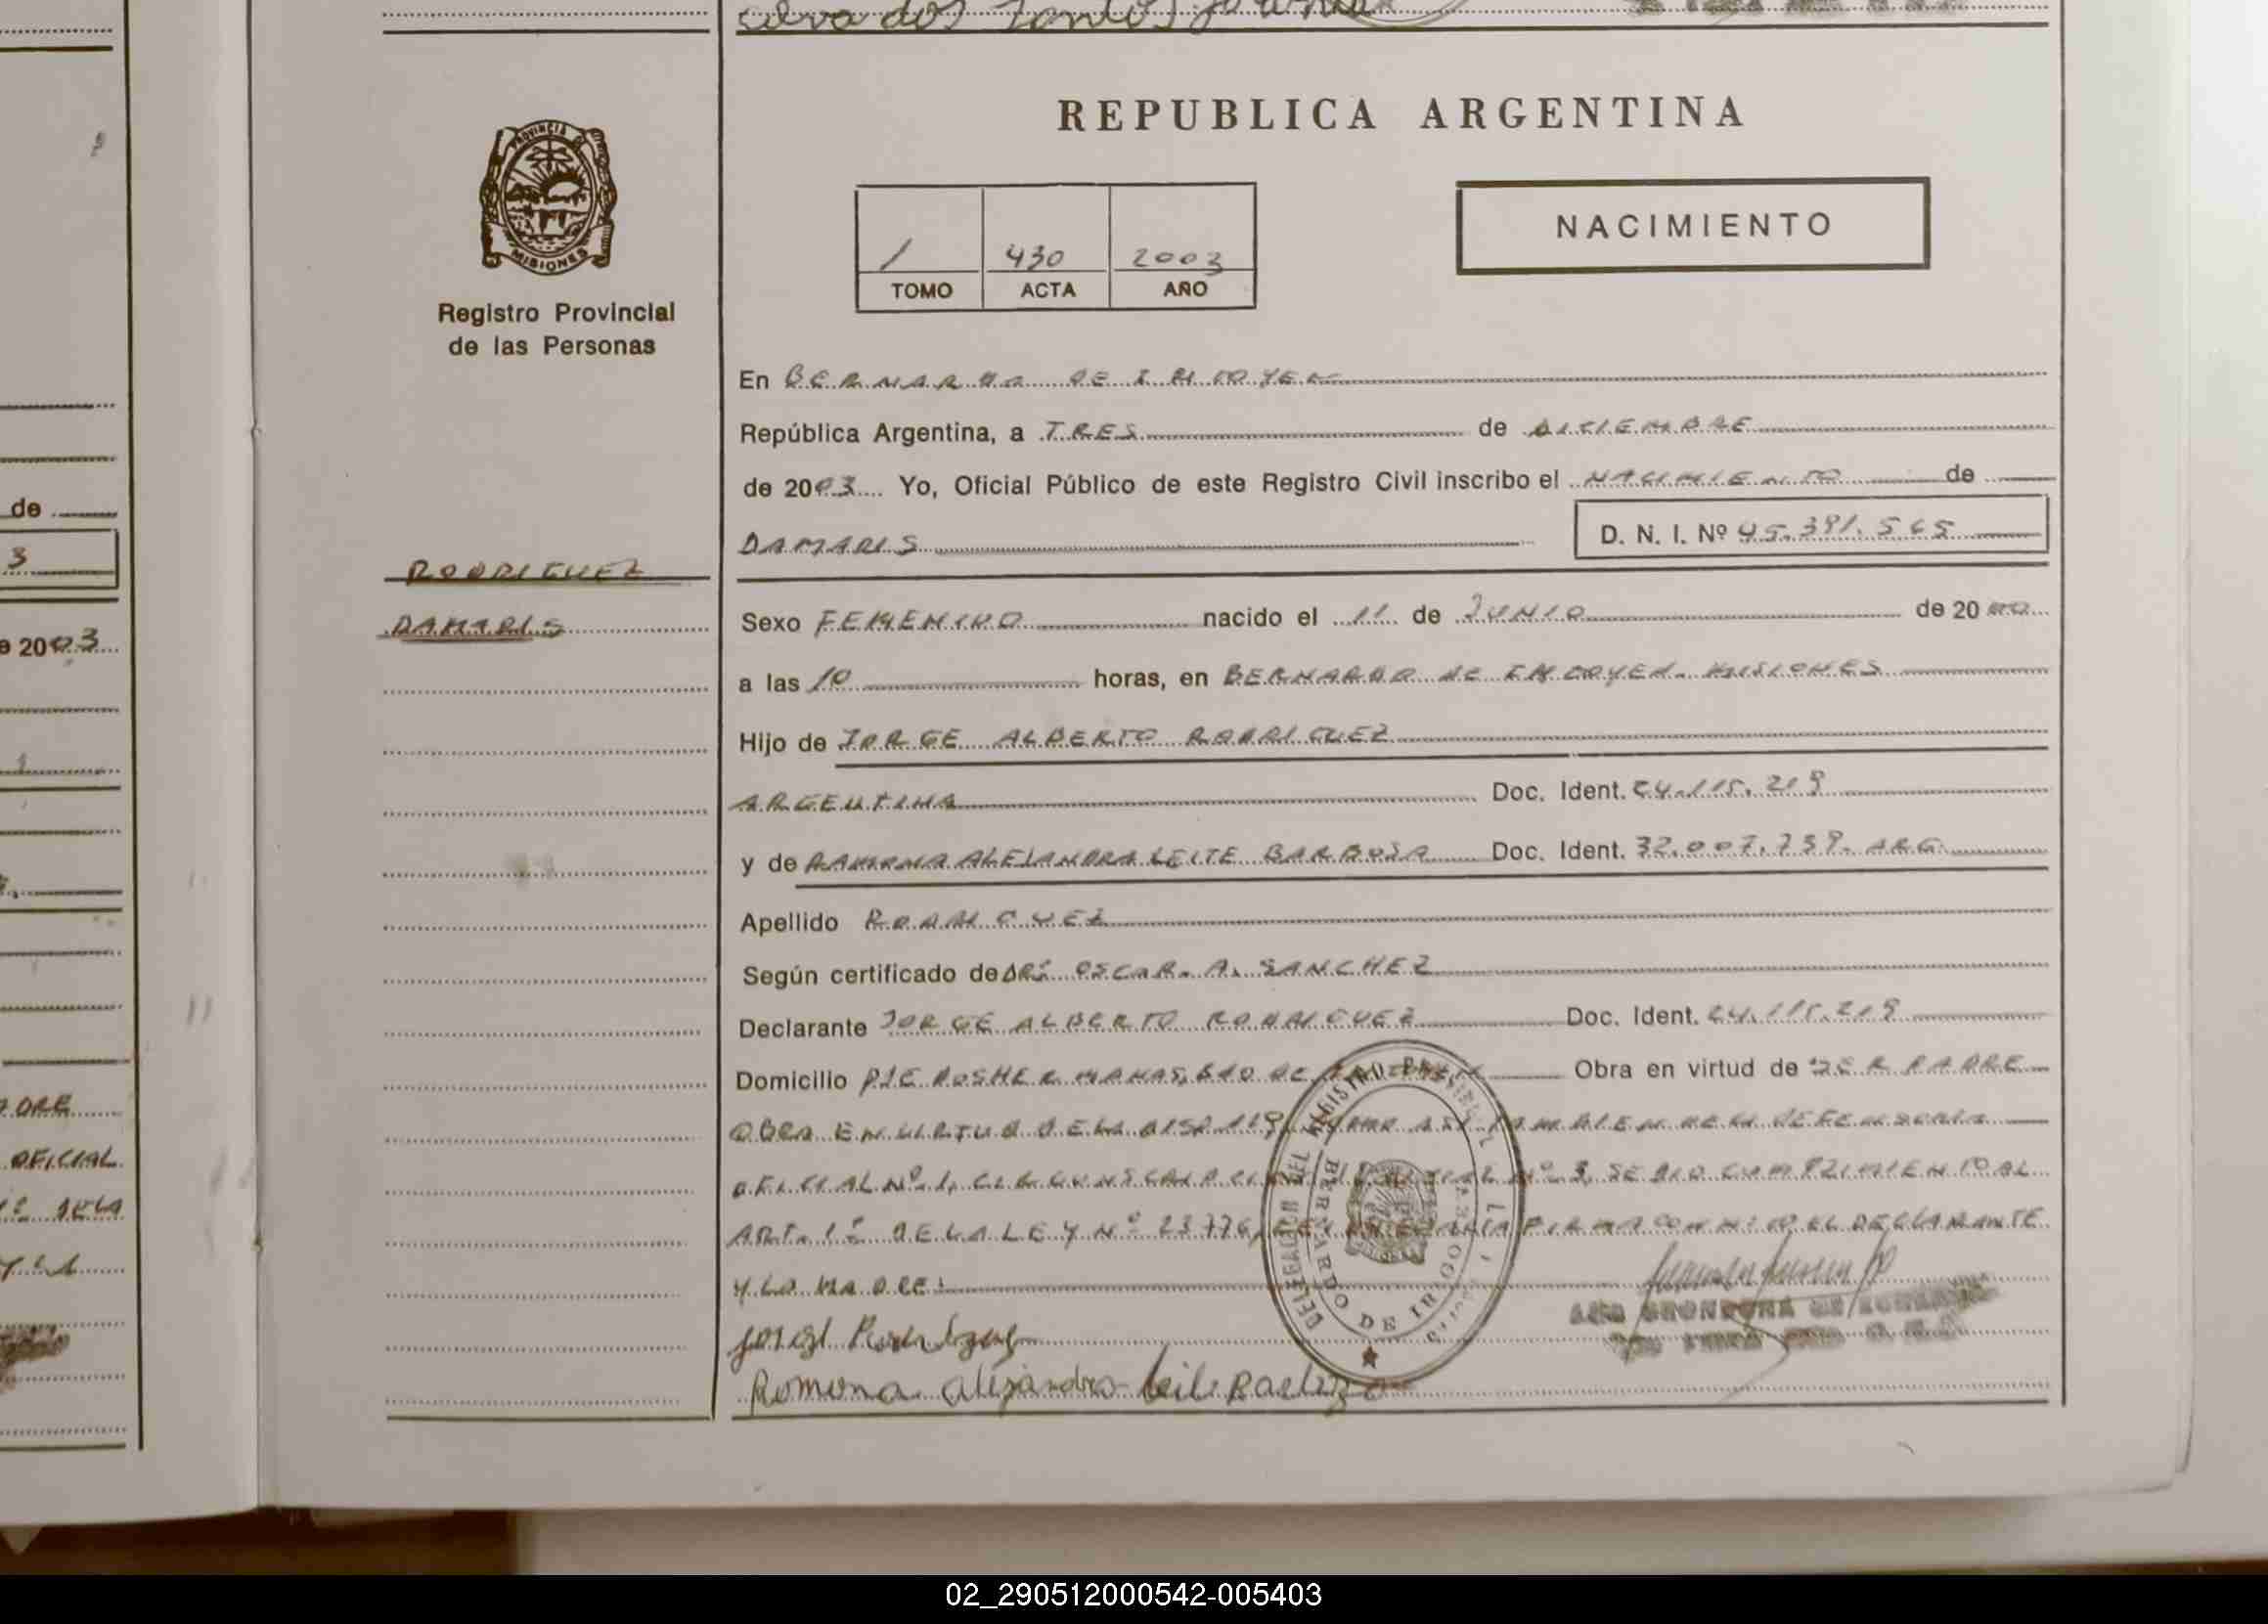 REPUBLICA ARGENTINA
PROVINCIA DE
MISIONES
Registro Provincial
de las Personas
NACIMIENTO
1 430 2003
TOMO ACTA AÑO
En BERNARDO DE IRIGOYEN
República Argentina, a TRES de DICIEMBRE
de 2003 Yo, Oficial Público de este Registro Civil inscribo el NACIMIENTO de
DAMARIS D. N. I. Nº 45.391.565
RODRIGUEZ
DAMARIS
Sexo FEMENINO nacido el 11 de JUNIO de 20
a las 10 horas, en BERNARDO DE IRIGOYEN. MISIONES
Hijo de JORGE ALBERTO RODRIGUEZ
ARGENTINA Doc. Ident. 24.115.219
y de RAMONA ALEJANDRA LEITE BARBOSA Doc. Ident. 32.007.739. ARG
Apellido RODRIGUEZ
Según certificado de DR: OSCAR. A. SANCHEZ
Declarante JORGE ALBERTO RODRIGUEZ Doc. Ident. 24.115.219
Domicilio PJE Obra en virtud de SER PADRE
OBRA EN VIRTUD DE LA DISP. 119 DEFENSORIA
OFICIAL Nº 1, CIRCUNSCRIPCION JUDICIAL Nº 3, SE DIO CUMPLIMIENTO AL
ART. 1º DE LA LEY Nº 23776, FIRMA CONMIGO EL DECLARANTE
Y LA MADRE:
DELEGACION DEL REGISTRO
BERNARDO DE IRIGOYEN
Ramona alejandra
de
3
2003
DRE
OFICIAL
02_290512000542-005403